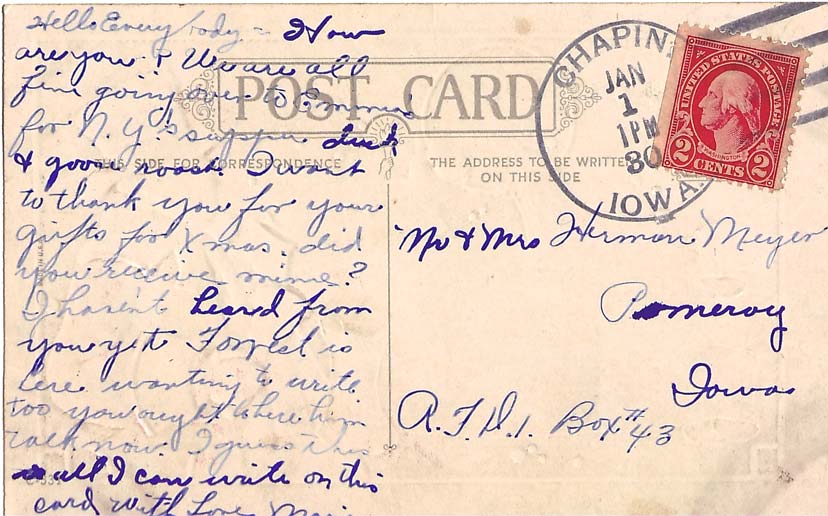 Hello Everybody - How
are you? We are all
fine going over to Emmas
for N.Y.'s supper duck
& goose roast. I want
to thank you for your
gifts for Xmas. did
you receive mine?
I havent heared from
you yet. Forrest is
here wanting to write
too you ought to here him
talk now. I guess this
is all I can write on this
card with Love
POST CARD
THIS SIDE FOR CORRESPONDENCE
THE ADDRESS TO BE WRITTEN
ON THIS SIDE
CHAPIN
JAN
1
1 PM
30
IOWA.
UNITED STATES POSTAGE
WASHINGTON
2 CENTS 2
Mr & Mrs Herman Meyer
Pomeroy
Iowa
R.F.D.1 Box # 43